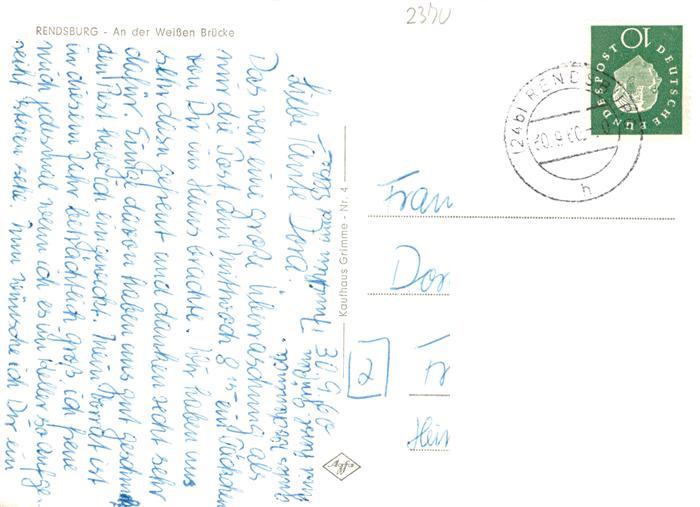 2370
RENDSBURG - An der Weißen Brücke
DEUTSCHE BUNDESPOST
10
(24b) RENDSBURG
30.9.60
h
30.9.60
Liebe Tante Dora!
Das war eine große Überraschung als
mir die Post am Mittwoch ein Päckchen
von Dir ins Haus brachte. Wir haben uns
sehr gefreut und danken recht sehr
dafür. Einige davon haben uns gut geschmeckt
den Rest habe ich eingeweckt. Mein Vorrat ist
in diesem Jahr beträchtlich groß ich freue
mich jedesmal wenn ich es im Keller so aufge-
reiht stehen sehe. Nun wünsche ich Dir ein
Kaufhaus Grimme - Nr. 4
Agfa
Frau
Dor
2
Fr